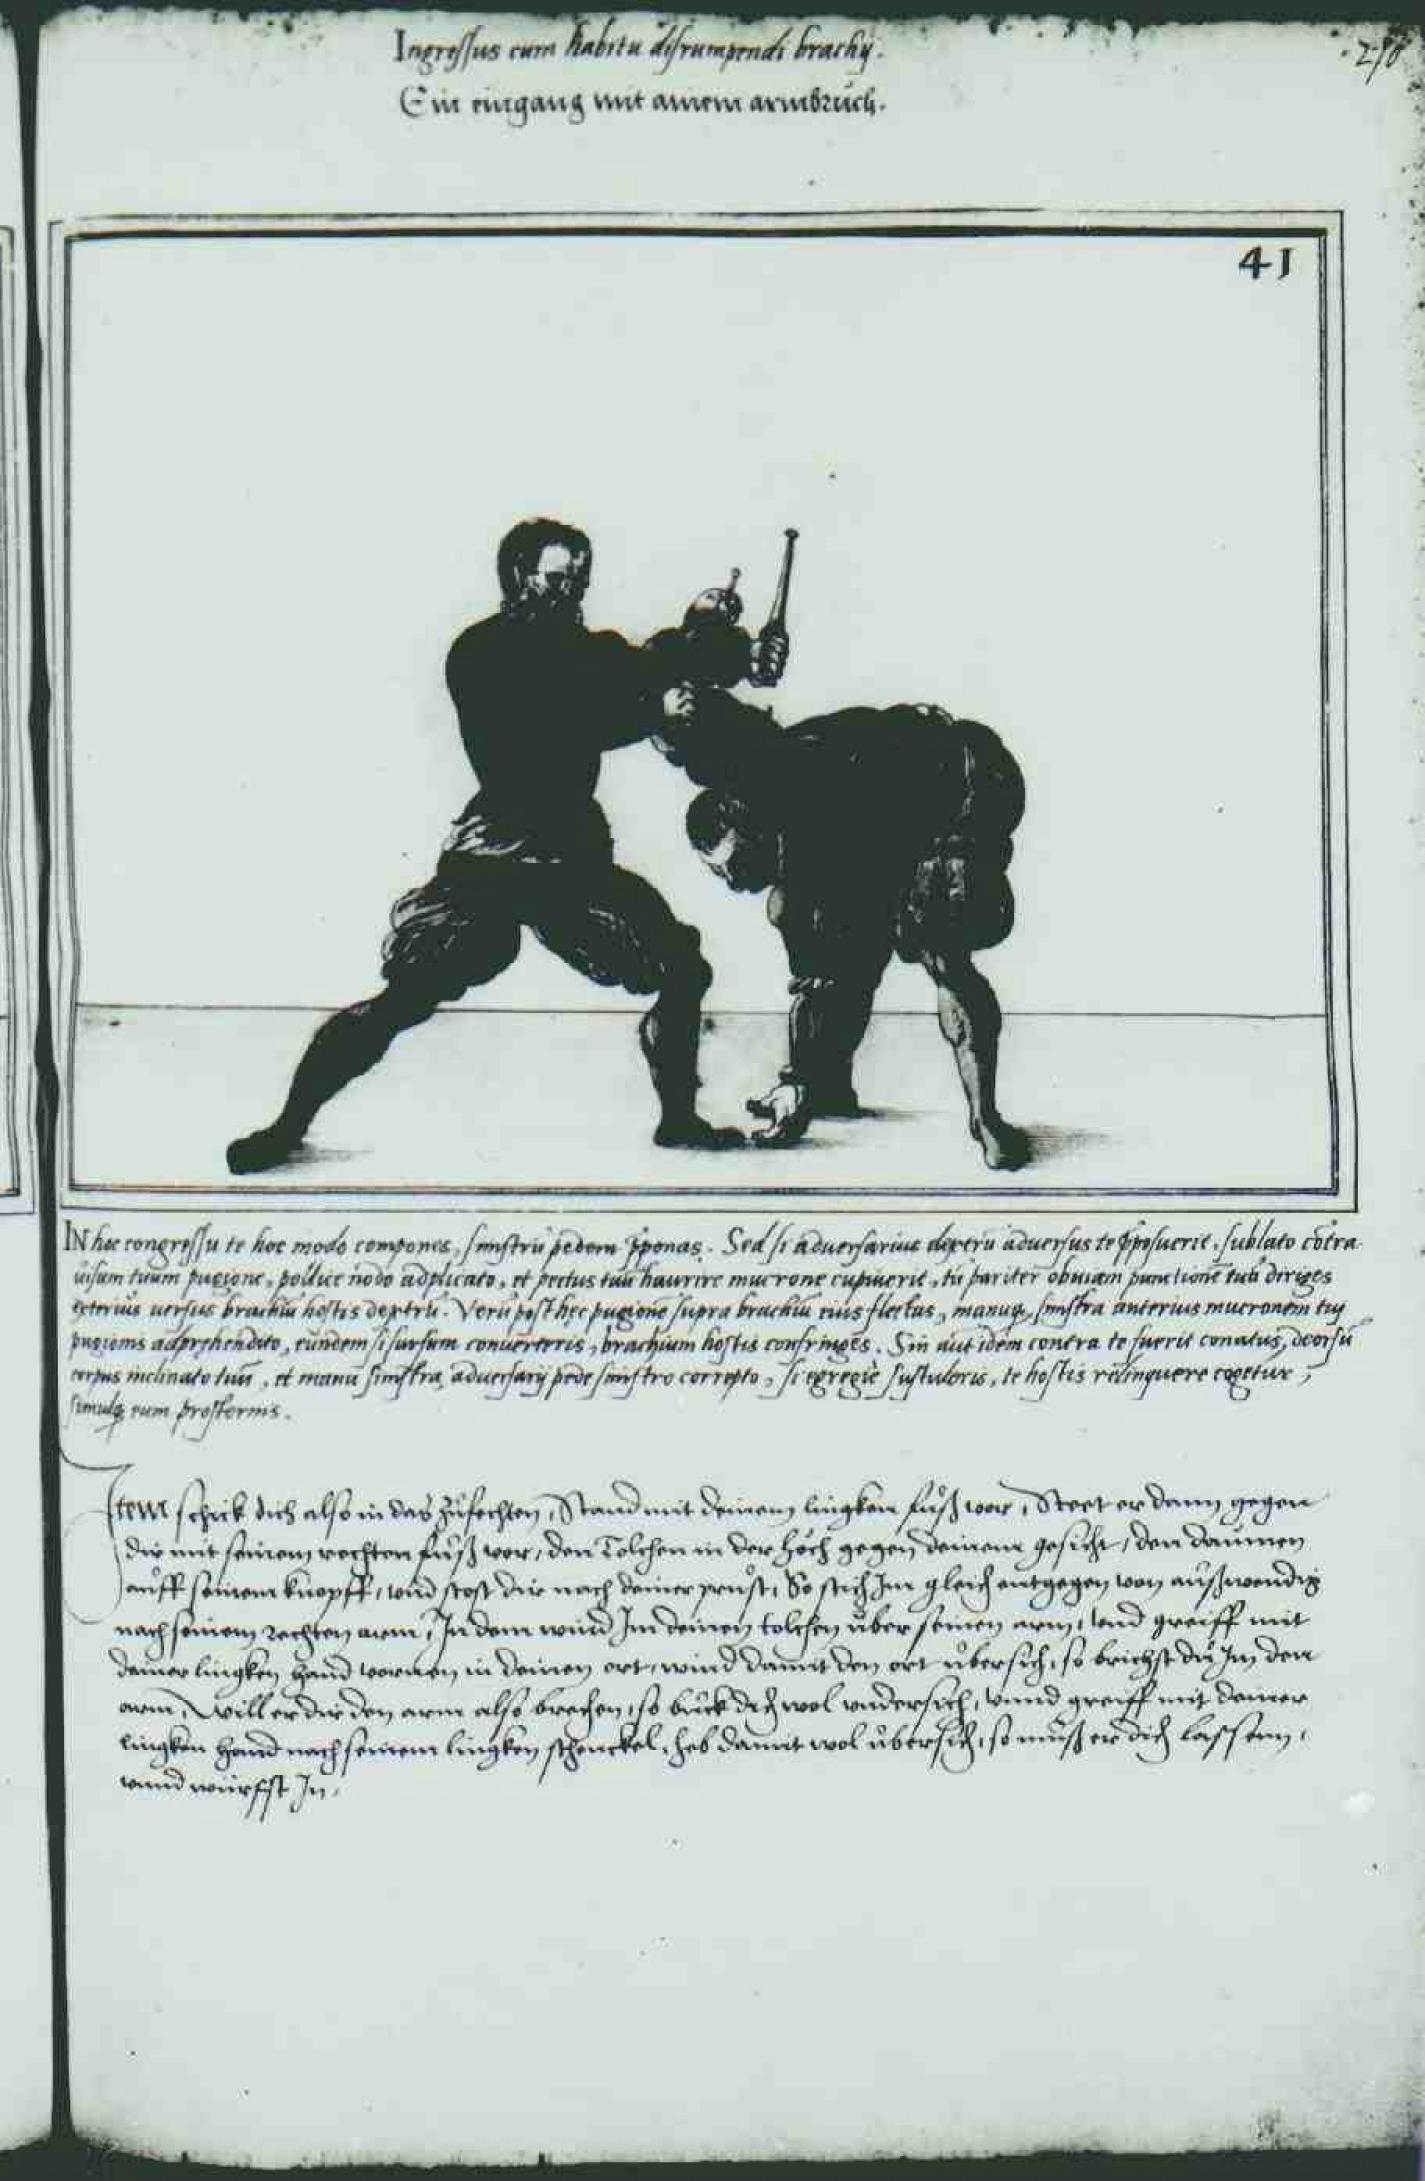 Ingressus cum habitu disrumpendi brachij.
Ein eingang mit ainem armbruch.
41
IN hoc congressu te hoc modo compones, sinistrũ pedem p̄ponas. Sed si adversarius dextrũ adversus te p̄posuerit, sublato cōtra
uisum tuum pugione, pollice nodo adplicato, et pectus tuũ haurire mucrone cupiuerit, tu pariter obuiam punctionē tuã diriges
exterius uersus brachiũ hostis dextrũ. Verũ post hęc pugionē supra brachiũ eius flectas, manuq̨ sinistra anterius mucronem tuj
pugionis adprehendito, eundem si sursum conuerteris, brachium hostis confringes. Sin aut idem contra te fuerit conatus, deorsũ
corpus inclinato tuũ, et manu sinistra, adversarij pede sinistro correpto, si egregie sustuleris, te hostis relinquere cogetur,
simulq̨ eum prosternis.
Item schick dich also in das Zůfechten, Stand mit deinem lingken fůß vor, Steet er dann gegen
dir mit seinem rechten fůß vor, den Tolchen in der höch gegen deinem gesicht, den daumen
auff seinem knopff, vnd stost dir nach deiner prust, So stich Im gleich entgegen von außwendig
nach seinem rechten arm, In dem wind Im deinen tolchen über seinen arm, vnd greiff mit
deiner lingken hand vornen in deinen ort, wind damit den ort übersich, so brichst du Im den
arm, Will er dir den arm also brechen, so buck dich wol vndersich, vnnd greiff mit deiner
lingken hand nach seinem lingken schenckel, heb damit wol übersich, so můß er dich lassenn,
vnnd würffst In.